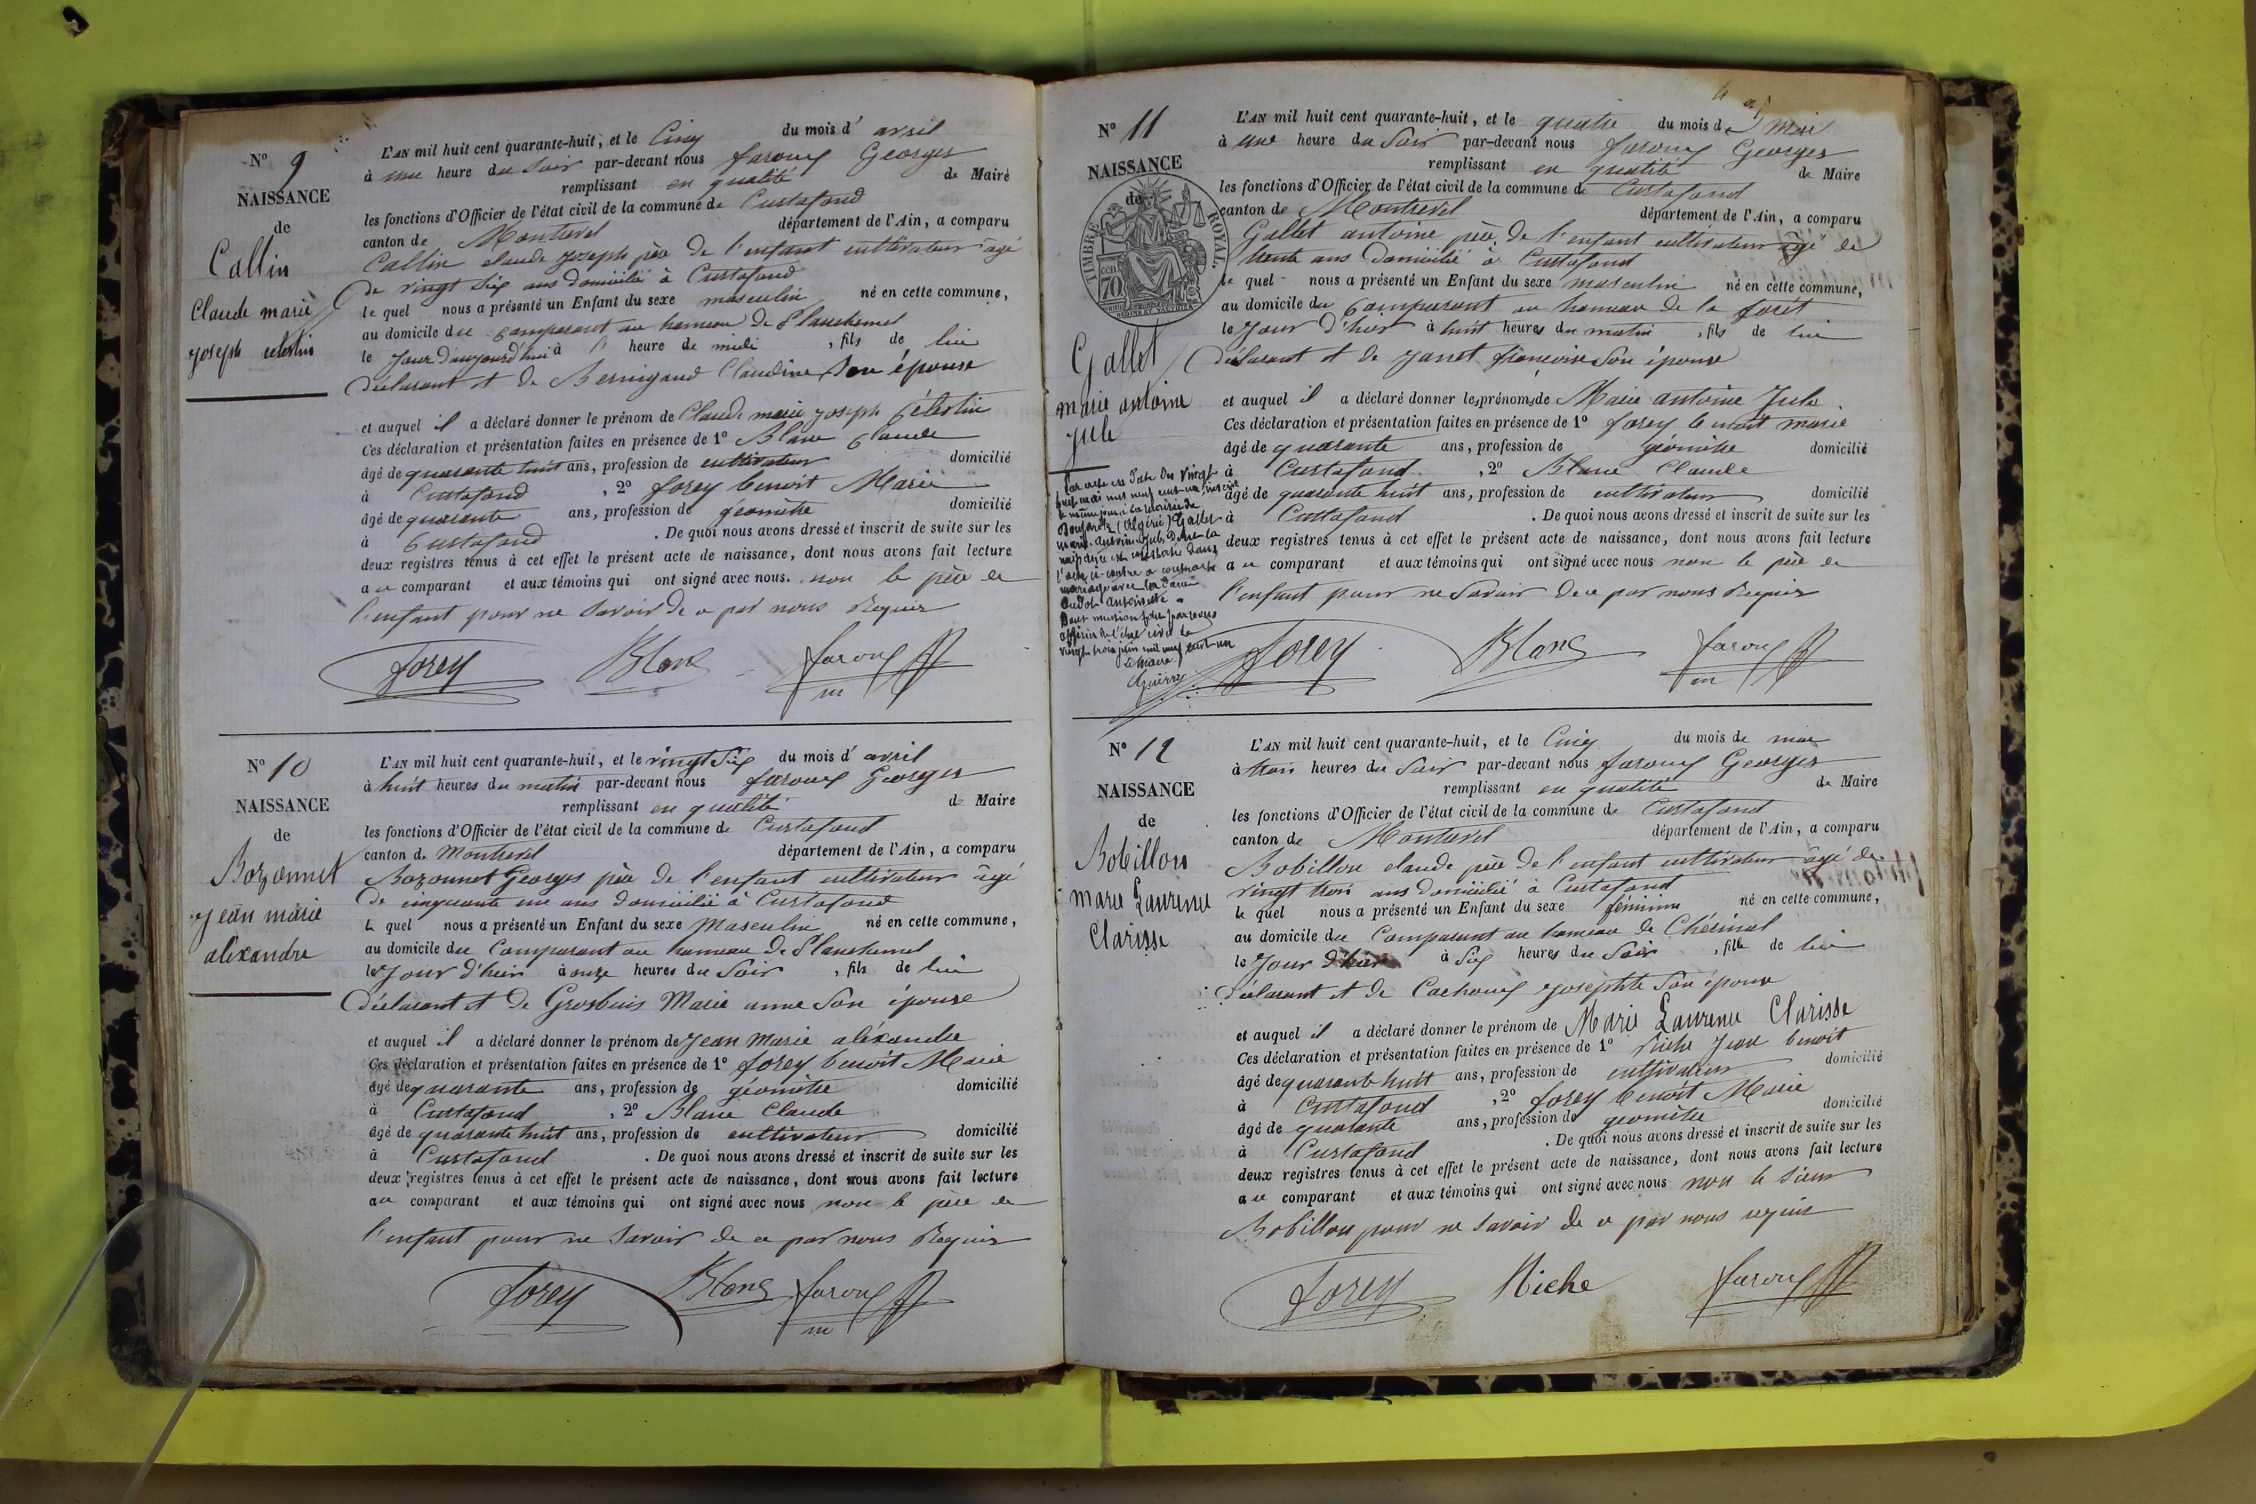 N° 9
NAISSANCE
de
Callin
Claude marie
joseph celestin
L'AN mil huit cent quarante-huit, et le Cinq du mois d' avril
à une heure du Soir par-devant nous faroux Georges
remplissant en qualité de Maire
les fonctions d'Officier de l'état civil de la commune de Curtafond
canton de Montrevel département de l'Ain, a comparu
Callin claude joseph père de l'enfant cultivateur agé
de vingt Six ans domicilié à Curtafond
le quel nous a présenté un Enfant du sexe masculin né en cette commune,
au domicile du Comparant au hameau de Planchemel
le Jour d'aujourd'hui à heure de midi , fils de lui
déclarant et de Bernigaud Claudine Son épouse
et auquel il a déclaré donner le prénom de Claude marie joseph Célestin
Ces déclaration et présentation faites en présence de 1° Blanc Claude
âgé de quarante huit ans, profession de cultivateur domicilié
à Curtafond , 2° forey benoit Marie
âgé de quarante ans, profession de géomètre domicilié
à Curtafond . De quoi nous avons dressé et inscrit de suite sur les
deux registres tenus à cet effet le présent acte de naissance, dont nous avons fait lecture
au comparant et aux témoins qui ont signé avec nous. non le père de
l'enfant pour ne Savoir de ce par nous Requis
forey Blanc faroux
m
N° 10
NAISSANCE
de
Bozonnet
Jean marie
alexandre
L'AN mil huit cent quarante-huit, et le vingt Six du mois d' avril
à huit heures du matin par-devant nous faroux Georges
remplissant en qualité de Maire
les fonctions d'Officier de l'état civil de la commune de Curtafond
canton de Montrevel département de l'Ain, a comparu
Bozonnet Georges père de l'enfant cultivateur agé
de cinquante un ans domicilié à Curtafond
le quel nous a présenté un Enfant du sexe Masculin né en cette commune,
au domicile du Comparant au hameau de Planchemel
le Jour d'hier à onze heures du Soir , fils de lui
déclarant et de Grosbuis Marie anne Son épouse
et auquel il a déclaré donner le prénom de Jean Marie aléxandre
Ces déclaration et présentation faites en présence de 1° forey benoit Marie
âgé de quarante ans, profession de géomètre domicilié
à Curtafond , 2° Blanc Claude
âgé de quarante huit ans, profession de cultivateur domicilié
à Curtafond . De quoi nous avons dressé et inscrit de suite sur les
deux registres tenus à cet effet le présent acte de naissance, dont nous avons fait lecture
au comparant et aux témoins qui ont signé avec nous non le père de
l'enfant pour ne Savoir de ce par nous Requis
forey Blanc faroux
m
N° 11
NAISSANCE
de
TIMBRE ROYAL
70
Gallet
marie antoine
jule
Par acte en date du vingt
mai mil neuf cent un inscrit
le même jour à la mairie de
Boufarik (Algérie) Gallet
marie-antoine-Jule, dont la
naissance est constatée dans
l'acte ci-contre a contracté
mariage avec
antoinette
Dont mention faite par nous
officier de l'état civil le
vingt trois juin mil neuf cent un
Le maire
L'AN mil huit cent quarante-huit, et le quatre du mois de Mai
à une heure du Soir par-devant nous faroux Georges
remplissant en qualité de Maire
les fonctions d'Officier de l'état civil de la commune de Curtafond
canton de Montrevel département de l'Ain, a comparu
Gallet antoine père de l'enfant cultivateur agé de
trente ans domicilié à Curtafond
le quel nous a présenté un Enfant du sexe masculin né en cette commune,
au domicile du Comparant au hameau de la forêt
le Jour d'hier à huit heures du matin , fils de lui
déclarant et de Janet françoise Son épouse
et auquel il a déclaré donner les prénoms de Marie antoine Jule
Ces déclaration et présentation faites en présence de 1° forey benoit marie
âgé de quarante ans, profession de géomètre domicilié
à Curtafond , 2° Blanc Claude
âgé de quarante huit ans, profession de cultivateur domicilié
à Curtafond . De quoi nous avons dressé et inscrit de suite sur les
deux registres tenus à cet effet le présent acte de naissance, dont nous avons fait lecture
au comparant et aux témoins qui ont signé avec nous non le père de
l'enfant pour ne Savoir de ce par nous Requis
forey Blanc faroux
m
N° 12
NAISSANCE
de
Bobillon
marie Laurence
Clarisse
L'AN mil huit cent quarante-huit, et le Cinq du mois de mai
à trois heures du Soir par-devant nous faroux Georges
remplissant en qualité de Maire
les fonctions d'Officier de l'état civil de la commune de Curtafond
canton de Montrevel département de l'Ain, a comparu
Bobillon claude père de l'enfant cultivateur agé de
vingt trois ans domicilié à Curtafond
le quel nous a présenté un Enfant du sexe féminin né en cette commune,
au domicile du Comparant au hameau de Chérinal
le Jour d'hier à Six heures du Soir , fille de lui
déclarant et de Cachoux Josephte Son épouse
et auquel il a déclaré donner le prénom de Marie Laurence Clarisse
Ces déclaration et présentation faites en présence de 1° Riche Jean benoit
âgé de quarante huit ans, profession de cultivateur domicilié
à Curtafond , 2° forey benoit Marie
âgé de quarante ans, profession de géomètre domicilié
à Curtafond . De quoi nous avons dressé et inscrit de suite sur les
deux registres tenus à cet effet le présent acte de naissance, dont nous avons fait lecture
au comparant et aux témoins qui ont signé avec nous non le Sieur
Bobillon pour ne Savoir de ce par nous requis
forey Riche faroux